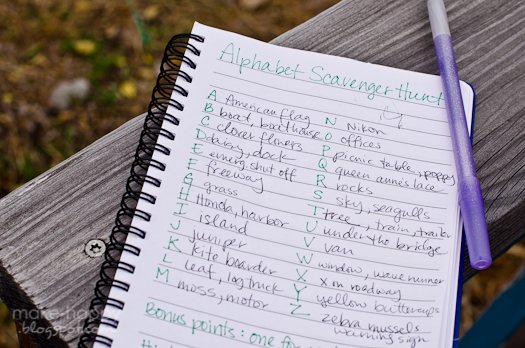 Alphabet Scavenger Hunt
A American flag
B boat, boathouse
C clover flowers
D daisy, dock
E emerg. shut off
F freeway
G grass
H Honda, harbor
I island
J juniper
K kite boarder
L leaf, log truck
M moss, motor
N Nikon
O offices
P picnic table, poppy
Q queen anne's lace
R rocks
S sky, seagulls
T tree, train, trailer
U under the bridge
V van
W window, wave runner
X X on roadway
Y yellow buttercups
Z zebra mussels warning sign
Bonus points: one for
make-happy
blogspot.com